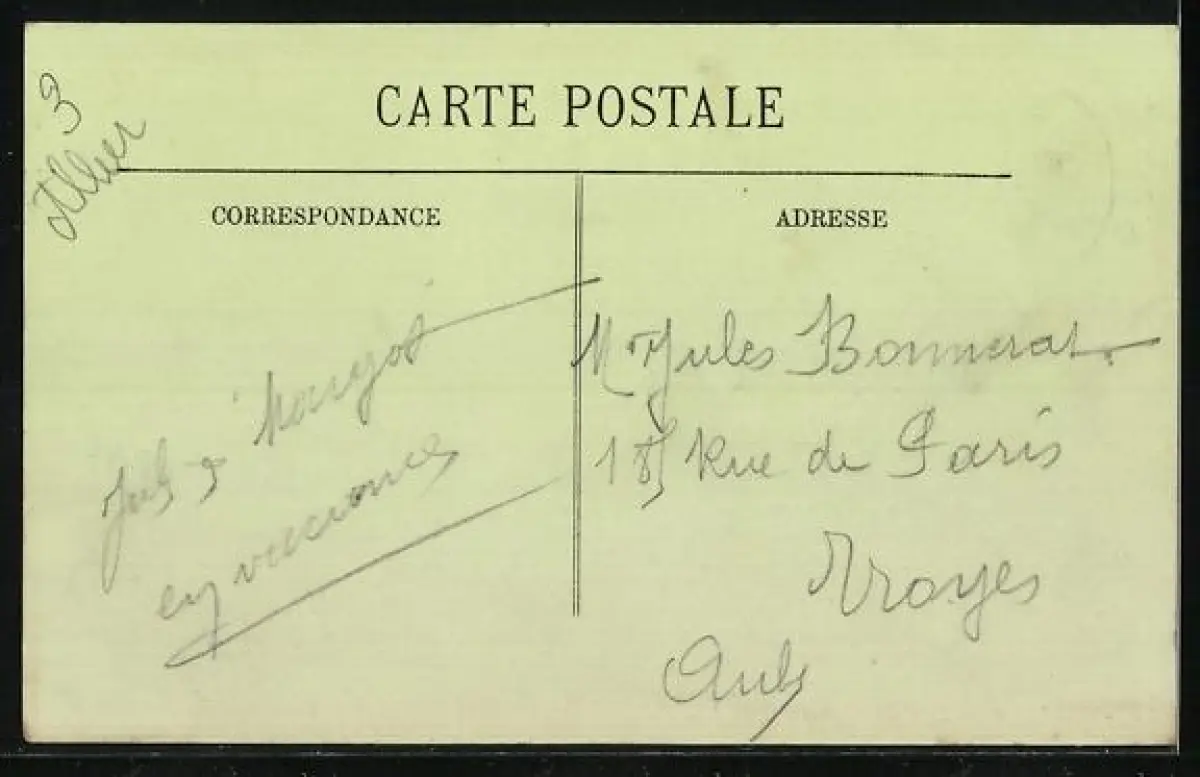 3
Allier
CARTE POSTALE
CORRESPONDANCE
ADRESSE
Margot
en vaccances
Mr Jules Bonnerat
18 Rue de Paris
Troyes
Aube